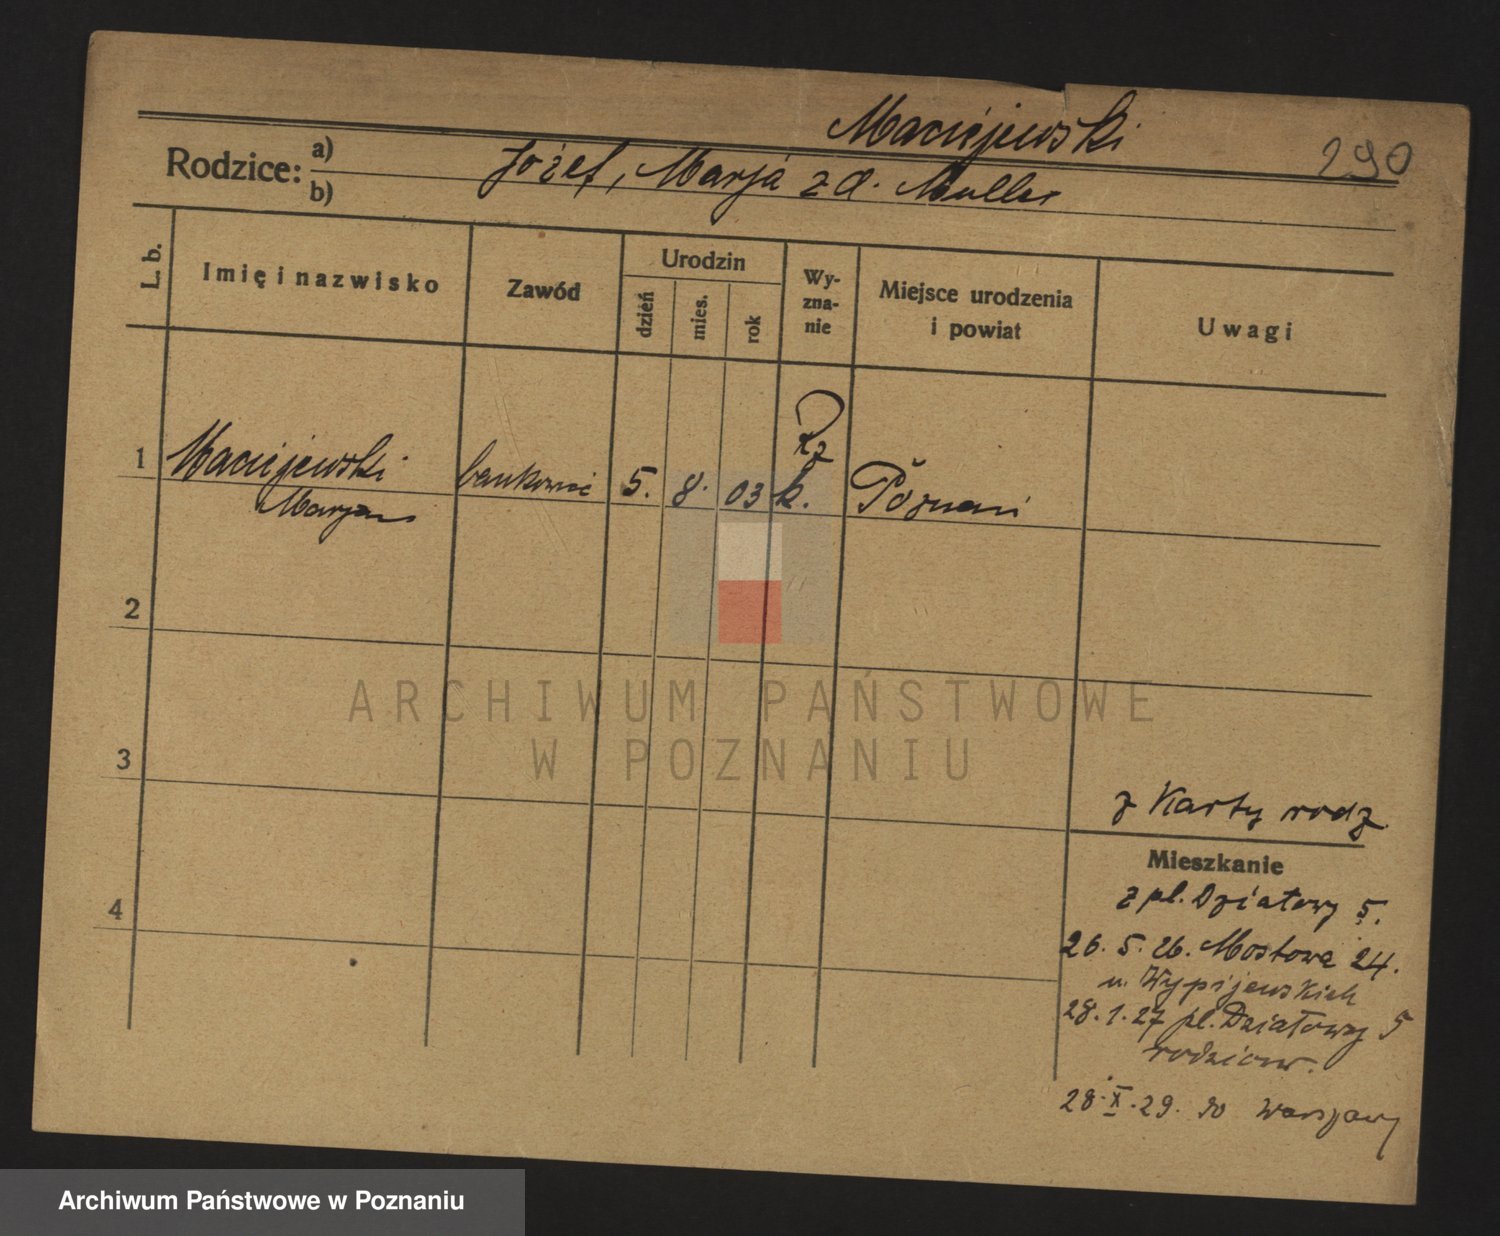 Maciejewski
290
Rodzice: a) b)
Józef, Marja z d. Muller
L. b.
Imię i nazwisko
Zawód
Urodzin
dzień
mies.
rok
Wy-
zna-
nie
Miejsce urodzenia
i powiat
Uwagi
1
Maciejewski
Marjan
bankowiec
5. 8. 03
Rz
k.
Poznań
2
3
4
z Karty rodz.
Mieszkanie
z pl. Działowy 5.
26. 5. 26. Mostowa 24.
u. Wypijewskich
28. 1. 27 pl. Działowy 5
rodziców.
28. X. 29. do Warszawy
ARCHIWUM PAŃSTWOWE
W POZNANIU
Archiwum Państwowe w Poznaniu